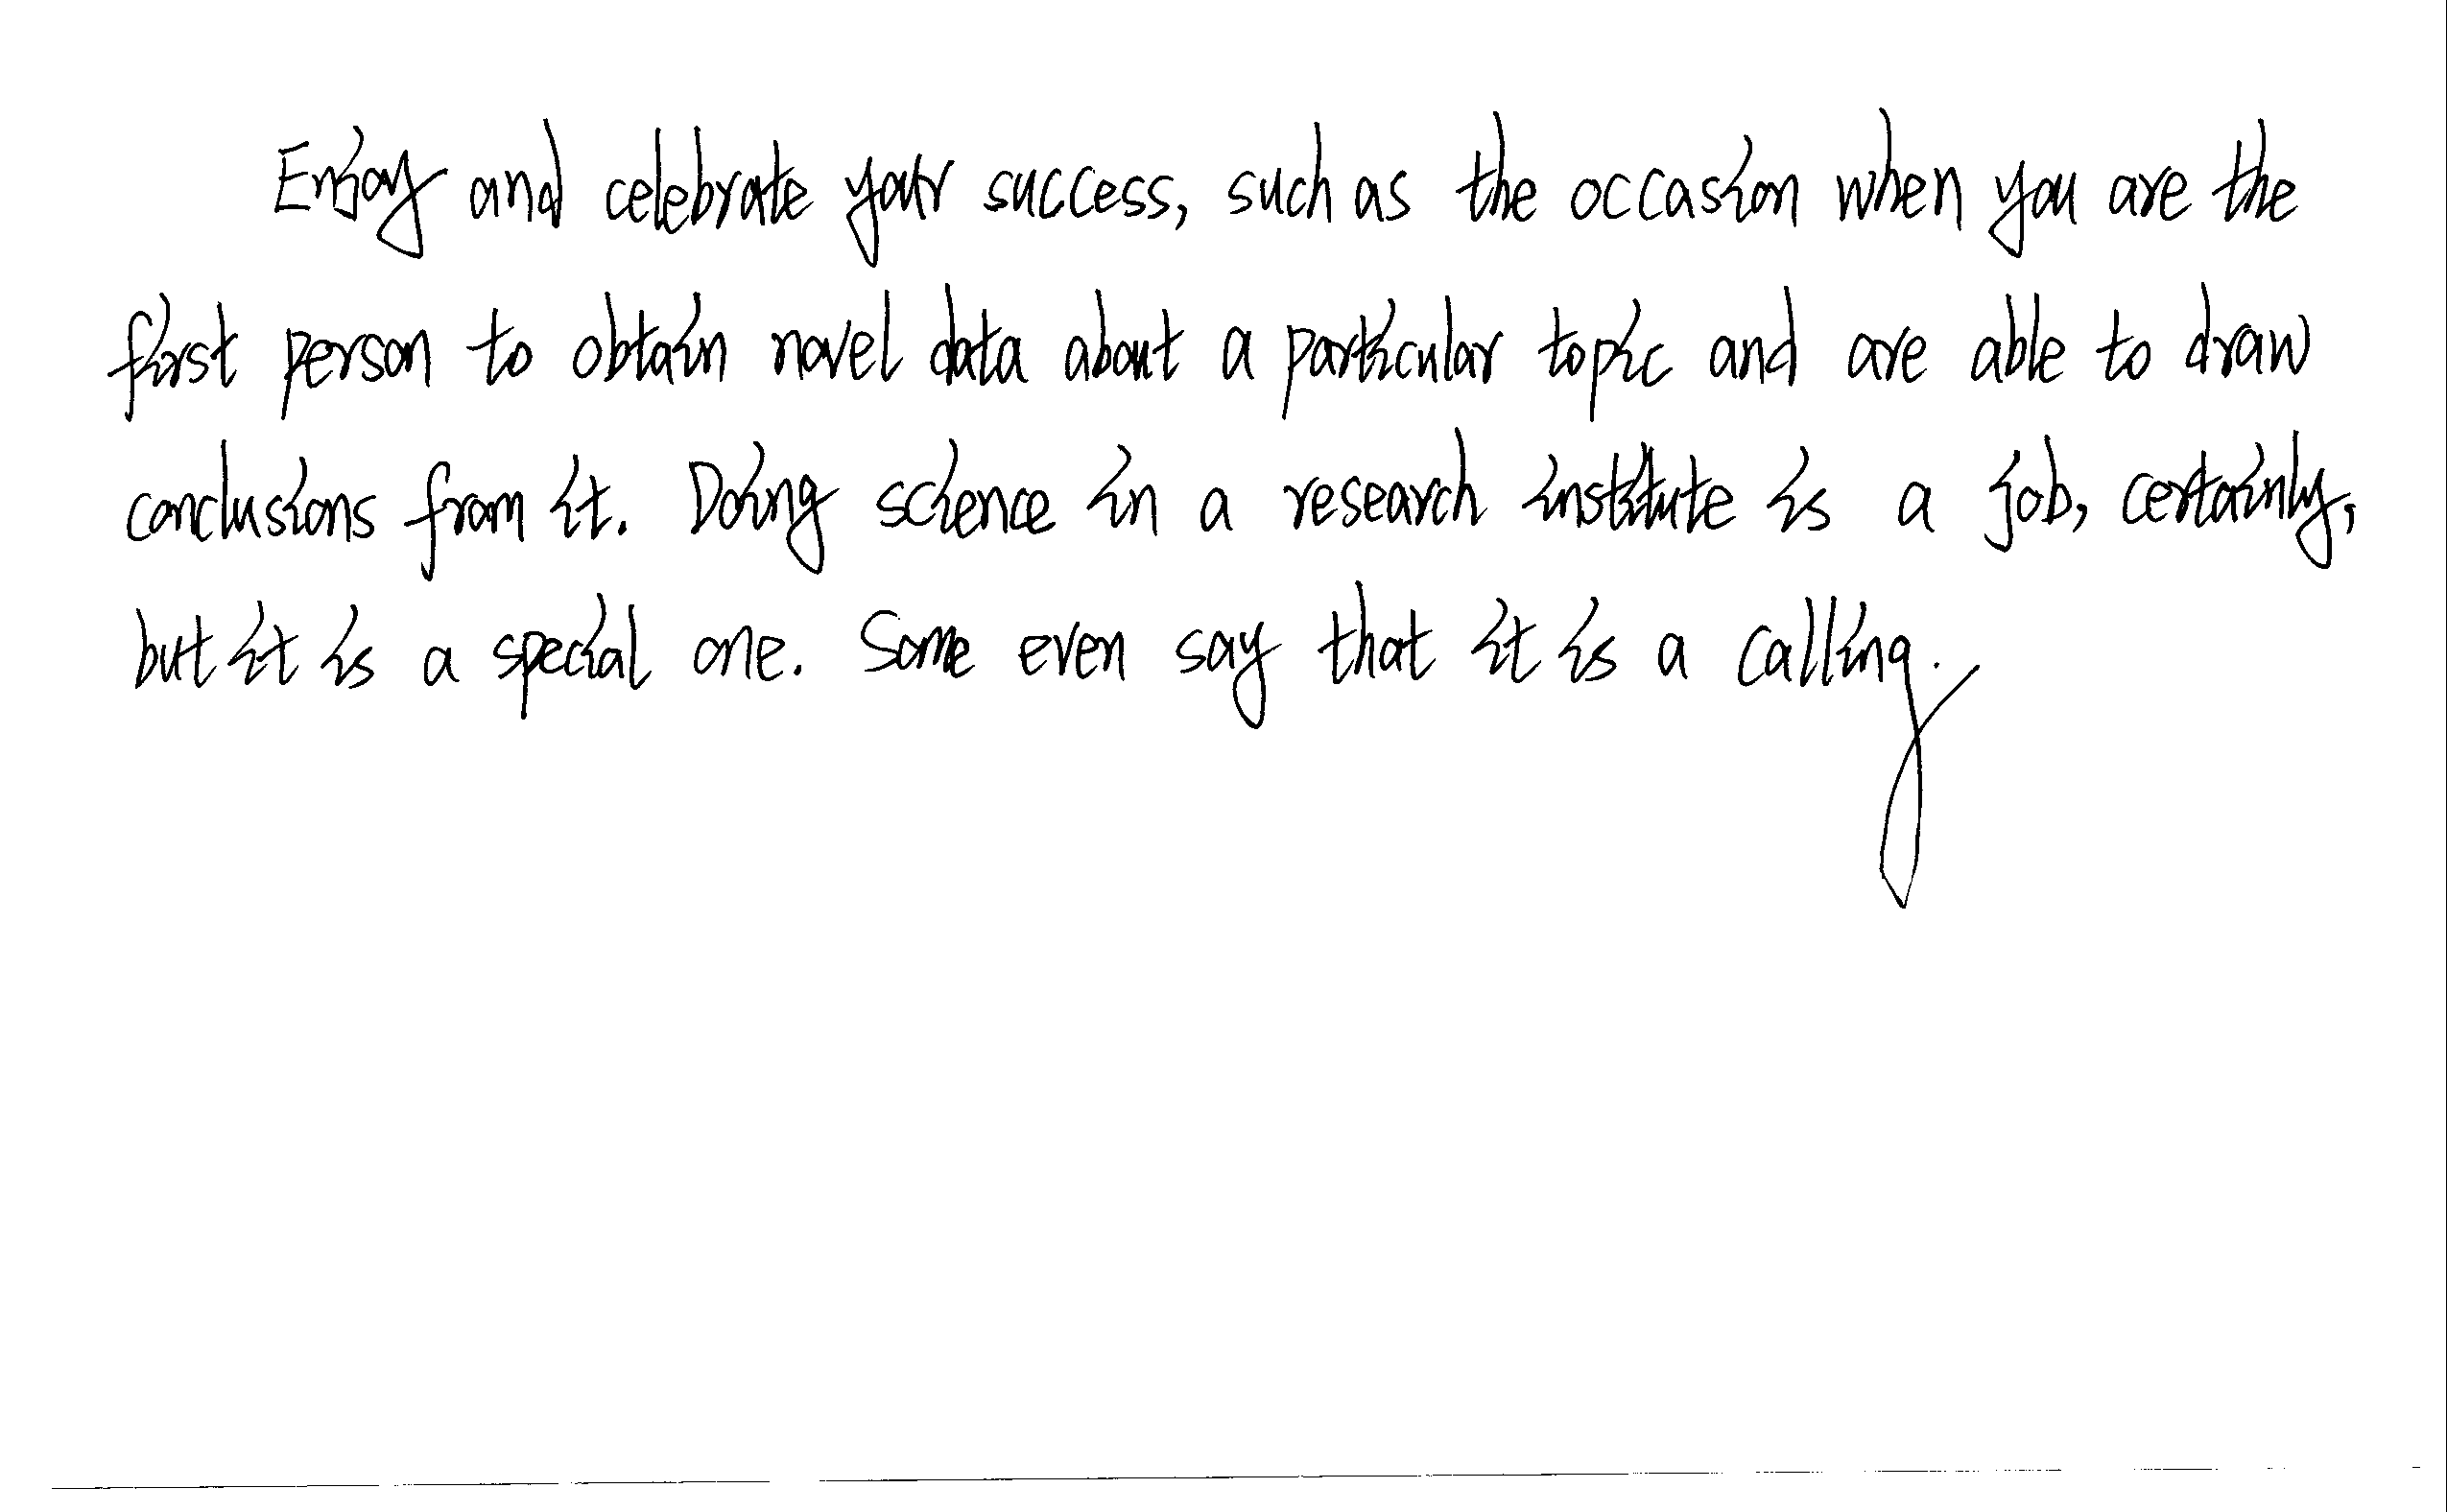 Enjoy and celebrate your success, such as the occasion when you are the
first person to obtain novel data about a particular topic and are able to draw
conclusions from it. Doing science in a research institute is a job, certainly,
but it is a special one. Some even say that it is a calling.